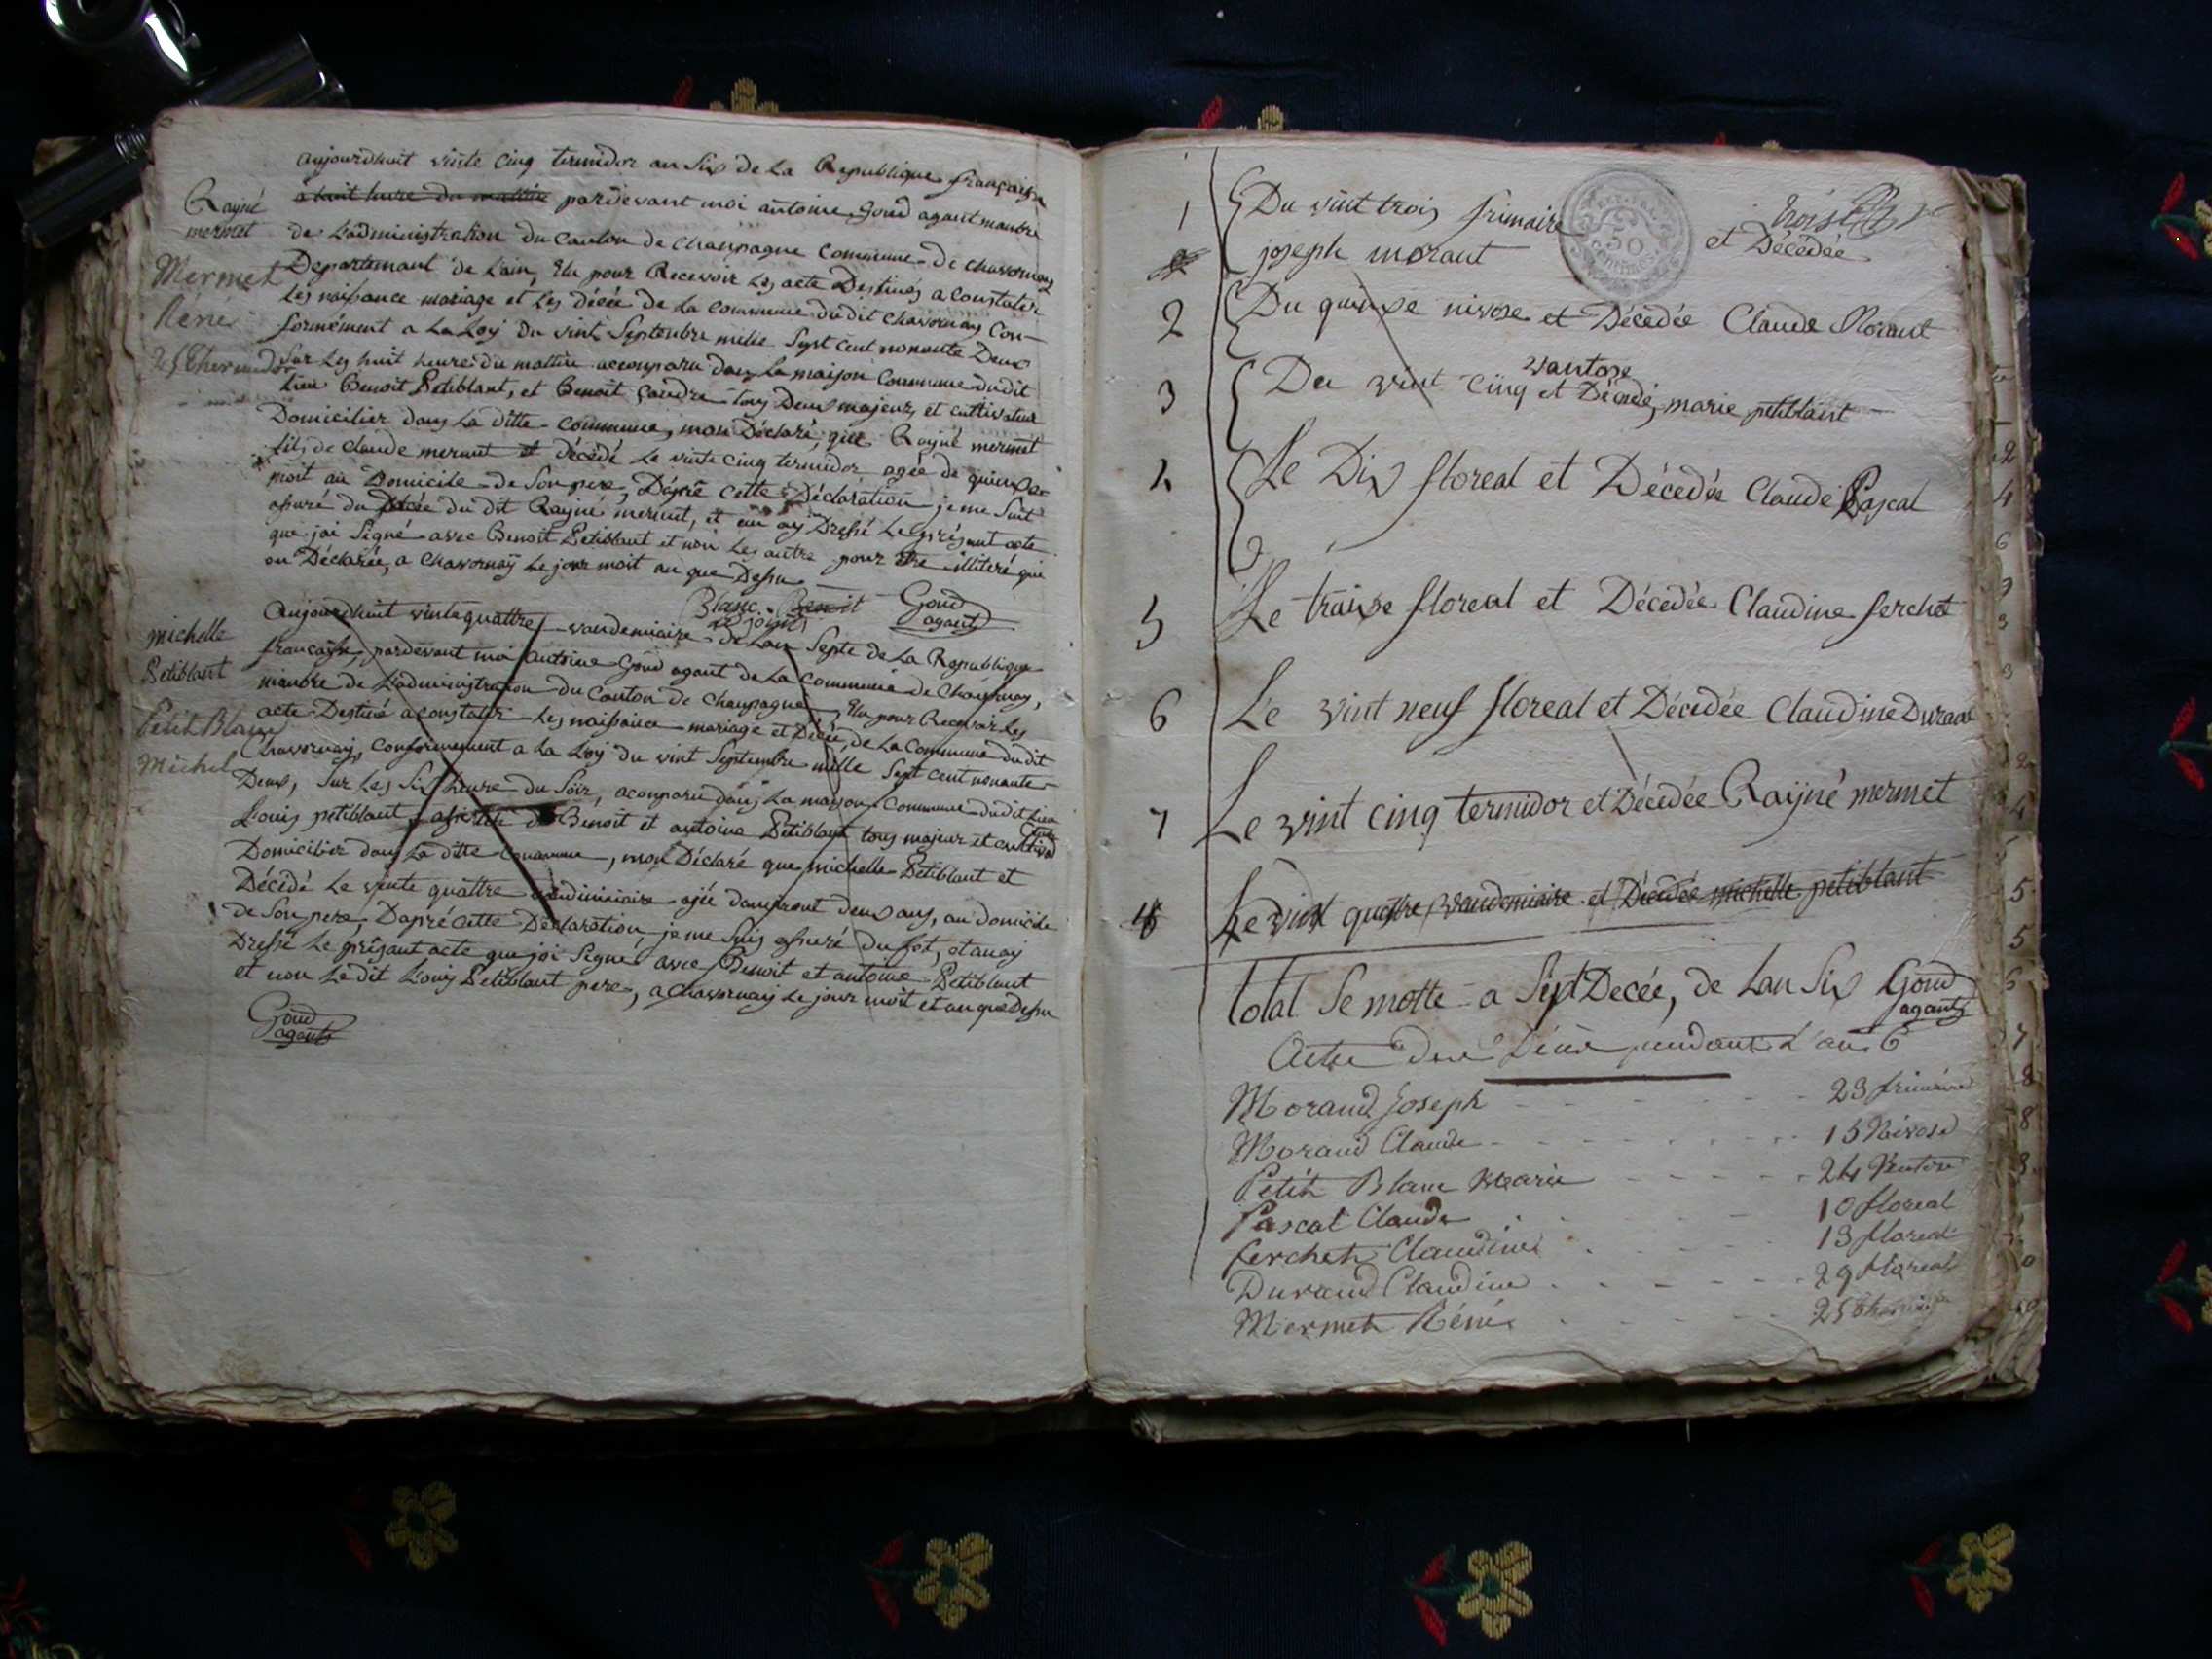 aujourdhuit vinte cinq termidor an Six de La Republique française
a huit heure du mattin pardevant moi antoine Goud agant manbre
de L'administration du Canton de Champagne Commune de chavornay
Departemant de L'ain, Elu pour Recevoir Les acte Destinés a Constater
Les naissance mariage et Les Décée de La Commune dudit Chavornay Con-
formément a La Loy du vint Septembre mille Sept Cent nonante Deux
Sur Les huit heure du mattin acomparu dans La maison Commune dudit
Lieu Benoit Petiblant, et Benoit tous Deux majeur et cultivateur
Domicilier dans La ditte Commune, mon Déclaré, que Rayné mermet
fils de Claude mermet et Décédé Le vinte cinq termidor agée de quinse
moit au Domicile de Son pere, Dapré Cette Déclaration je me Suit
assuré du Décée du dit Rayné mermet, et an ay Dressé Le présant acte
que jai Signé avec Benoit Petiblant et non Les autre pour être illiteré qui
on Déclarée, a Chavornay Le jour moit an que Dessu
Blanc Benoit
Goud
agant
Rayné
mermet
Mermet
Réné
25 Thermidor
aujourdhuit vinte quattre vandemiaire de Lan Septe de La Republique
française, pardevant moi antoine Goud agant de La Commune de Chavornay,
manbre de L'administration du Canton de Champagne, Elu pour Recevoir Les
acte Destiné a Constater Les naissance mariage et Décée, de La Commune dudit
Chavornay, Conformement a La Loy du vint Septembre mille Sept Cent nonante
Deux, Sur Les Six heure du Soir, acomparu dans La maison Commune dudit Lieu
Louis petiblant, assisté de Benoit et antoine Petiblant tous majeur et
Domicilier dans La ditte Commune, mon Déclaré que michelle Petiblant et
Décédé Le vinte quattre vandemiaire agée danviront deux ans, au domicile
de Son pere, Dapré Cette Déclaration, je me Suis assuré du fet, et an ay
Dressé Le présant acte que jai Signé avec Benoit et antoine Petiblant
et non Le dit Louis Petiblant pere, a Chavornay Le jour moit et an que Dessu
Goud
agant
michelle
Petiblant
Petit Blanc
Michel
1 Du vint trois frimaire et Décédée
joseph morant
50
2 Du quinse nivose et Décedée Claude Morant
vantose
3 Du vint cinq et Décedé, marie petiblant
4 Le Dix floreal et Décedée Claude Pascal
5 Le traise floreal et Décedée Claudine ferchet
6 Le vint neuf floreal et Décedée Claudine Durant
7 Le vint cinq termidor et Décedée Rayné mermet
Le vint quattre vandemiaire et Décedée michelle petiblant
total Se motte a Sept Decée, de Lan Six Goud
agant
Actes des Décès pendant L'an 6
Morand Joseph 23 frimaire
Morand Claude 15 Nivose
Petit Blanc Marie 24 Ventose
Pascal Claude 10 floreal
ferchet Claudine 13 floreal
Durand Claudine 29 floreal
Mermet Réné 25 thermidor